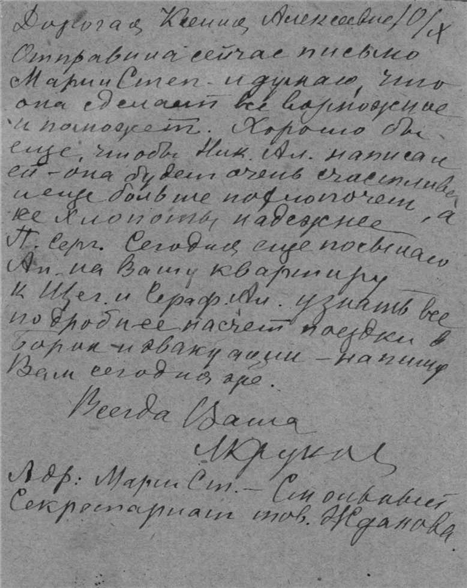 Дорогая Ксения Алексеевна 10/X
Отправила сейчас письмо
Марии Степ. и думаю, что
она сделает все возможное
и поможет. Хорошо бы
еще, чтобы Ник. Ал. написал
ей - она будет очень счастлива
и еще больше похлопочет, а
ее хлопоты надежнее
П. Серг. Сегодня еще посылаю
Ан. на Вашу квартиру
к Щег. и Сераф. Ал. узнать все
подробнее насчет поездки в
Борок и эвакуации - напишу
Вам сегодня же.
Всегда Ваша
Адр: Марии Ст. - Смольный
Секретариат тов. Жданова.